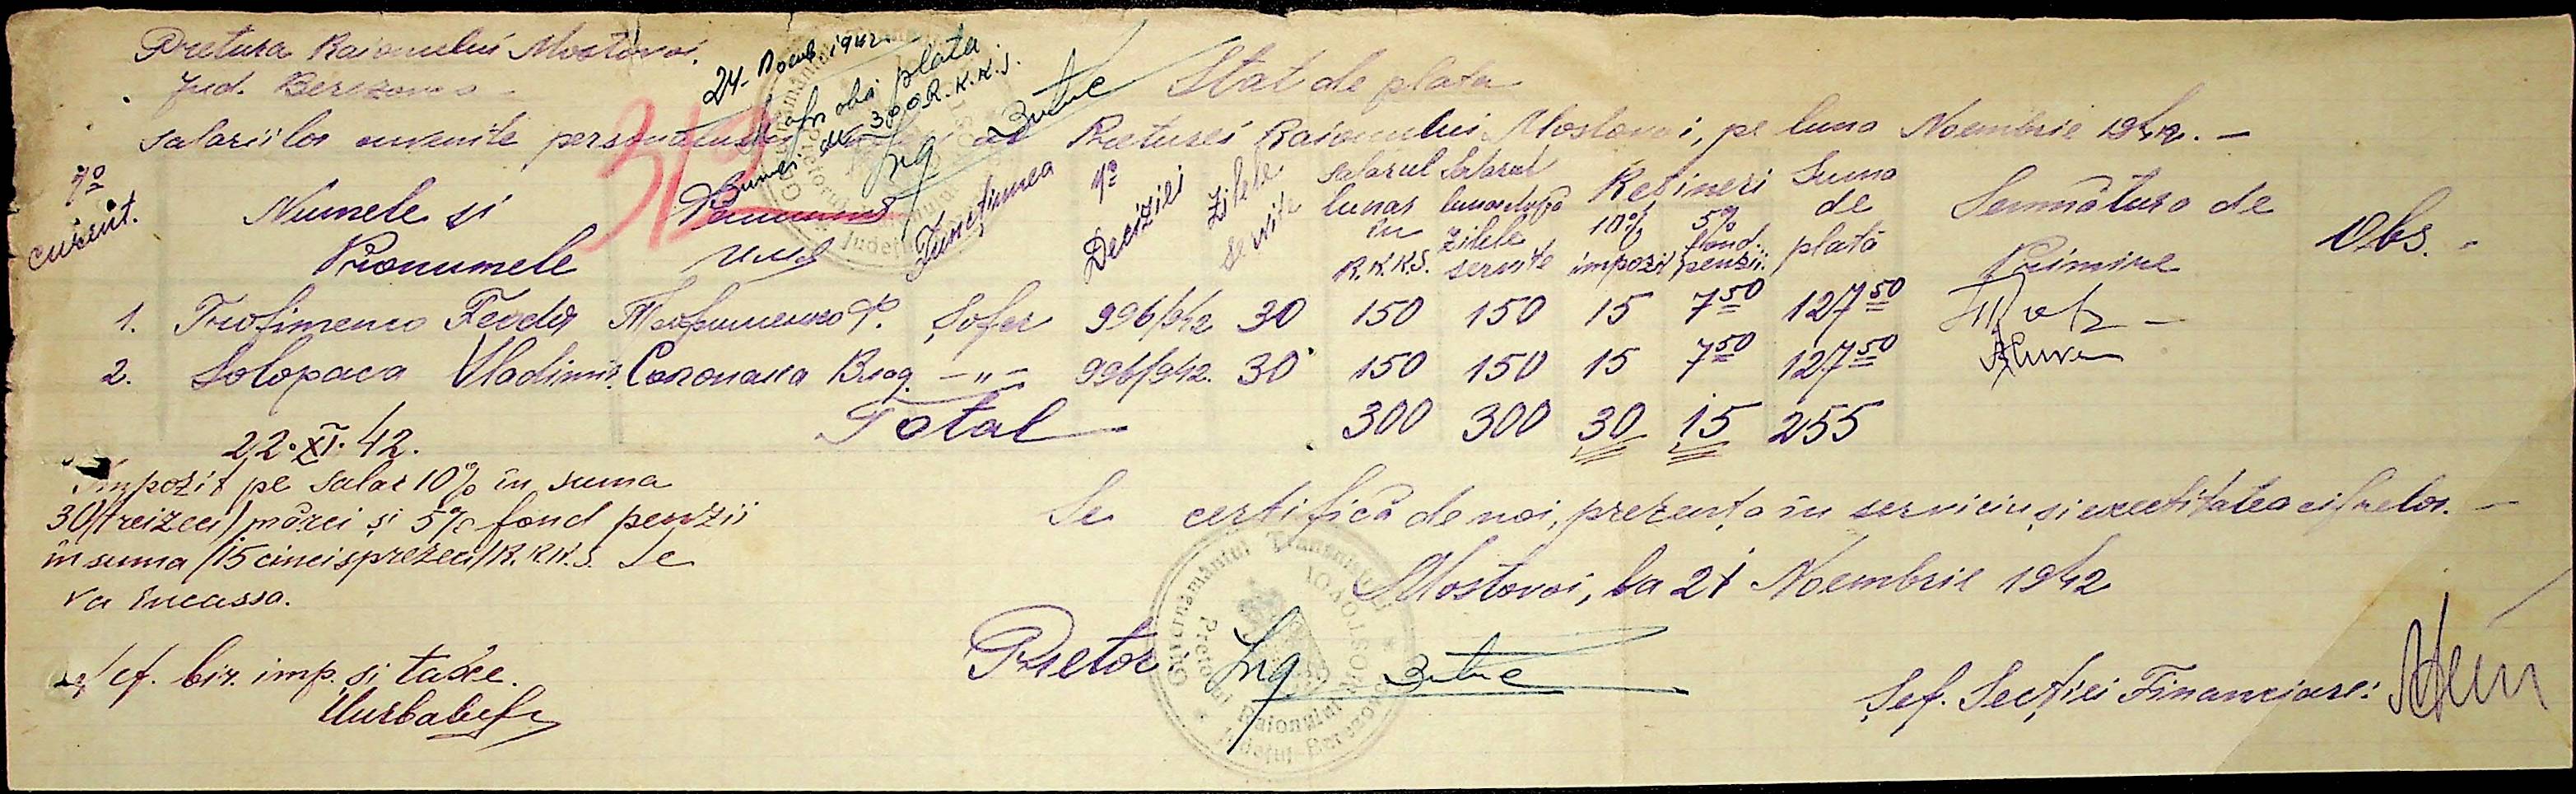 Pretura Raionului Mostovoi.
Jud. Berezovca
24. Noemb. 1942.
aprobă plata
sumei de 300 R.K.K.S.
Ing
Stat de plata
salariilor cuvenite personalului al Preturei Raionului Mostovoi, pe luna Noembrie 1942. —
312
No curent. Numele și Pronumele Funcțiunea No Deciziei Zilele servite Salarul lunar în R.K.K.S. Salarul lunar după zilele servite Rețineri 10% impozit 5% fond. penzii. Suma de plată Semnătura de Primire Obs. -
1. Trofimenco Feodor Трофименко Ф. Șofer 996/942 30 150 150 15 7 50 127 50
2. Solopaca Vladimir. Солопака Влад. —"— 996/942. 30 150 150 15 7 50 127 50
Total 300 300 30 15 255
22.XI.42.
Impozit pe salar 10% în suma
30/treizeci/mărci și 5% fond penzii
în suma /15 cincisprezeci/R.K.K.S. Se
va încassa.
Șef. bir. imp. și taxe.
Se certifică de noi, prezența în serviciu și exectitatea cifrelor. —
Mostovoi, la 21 Noembrie 1942
Pretor. Ing
Șef. Secției Financiare:
Guvernământul Transnistriei
Pretura Raionului
MOSTOVOI
Județul Berezovca